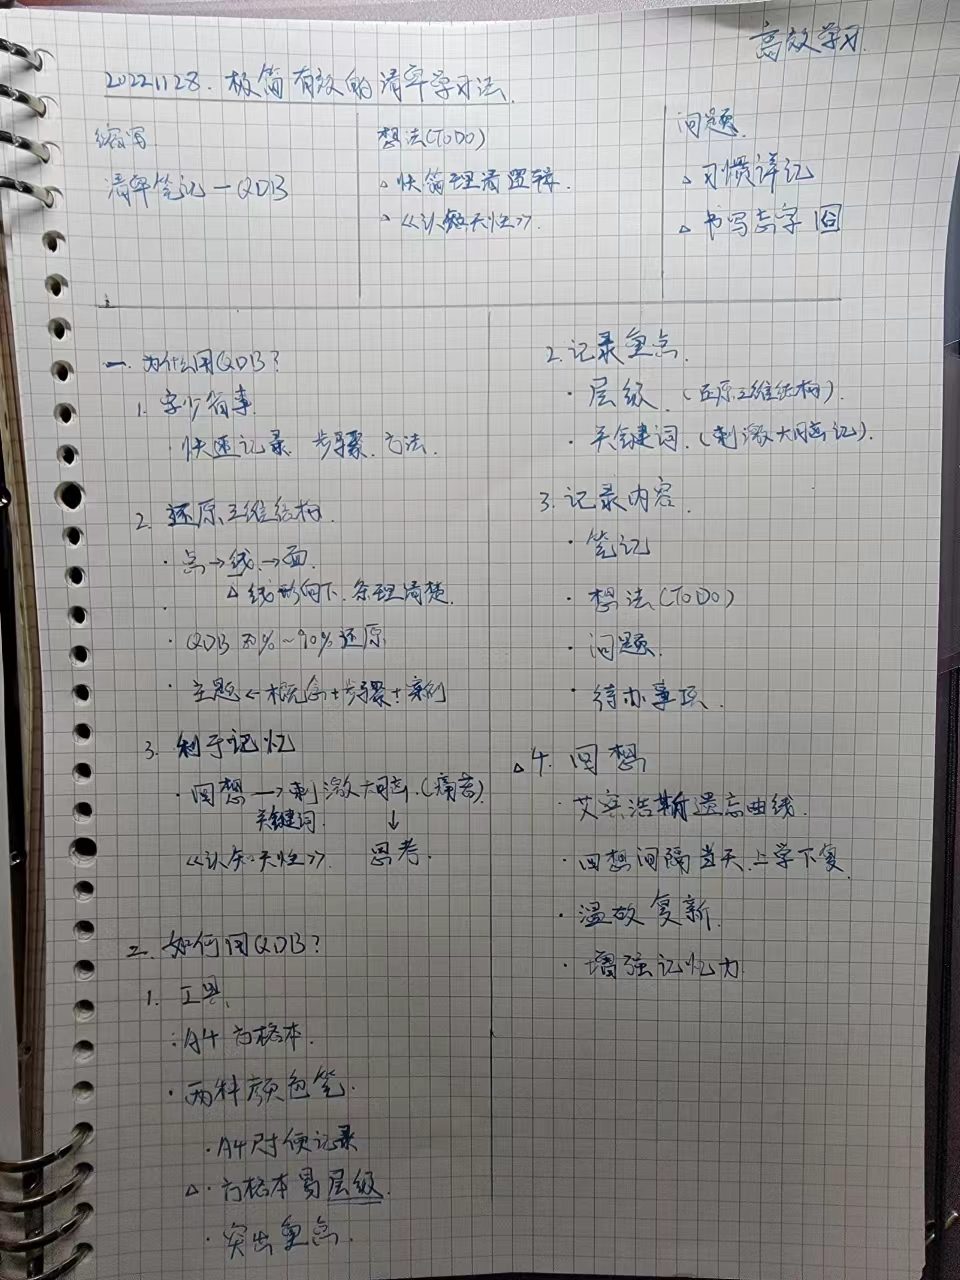 高效学习
20221128. 极简有效的清单学习法.
缩写
清单笔记—QDB
想法(TODO)
△快简理清逻辑.
△《认知天性》.
问题.
△习惯详记
△书写忘字 囧
一. 为什么用QDB?
1. 字少省事.
·快速记录. 步骤. 方法.
2. 还原三维结构.
·点→线→面.
△线形向下.条理清楚.
·QDB 80%~90%还原
·主题←概念+步骤+案例
3. 利于记忆
·回想→刺激大脑.(痛苦).
关键词. ↓
《认知天性》. 思考.
二. 如何用QDB?
1. 工具.
:A4方格本.
·两种颜色笔.
·A4尺寸便记录
△·方格本易层级.
·突出重点.
2. 记录重点.
·层级.(还原三维结构).
·关键词.(刺激大脑记).
3. 记录内容.
·笔记
·想法(TODO)
·问题.
·待办事项.
△4. 回想
·艾宾浩斯遗忘曲线.
·回想间隔当天.上学下复.
·温故复新.
·增强记忆力.